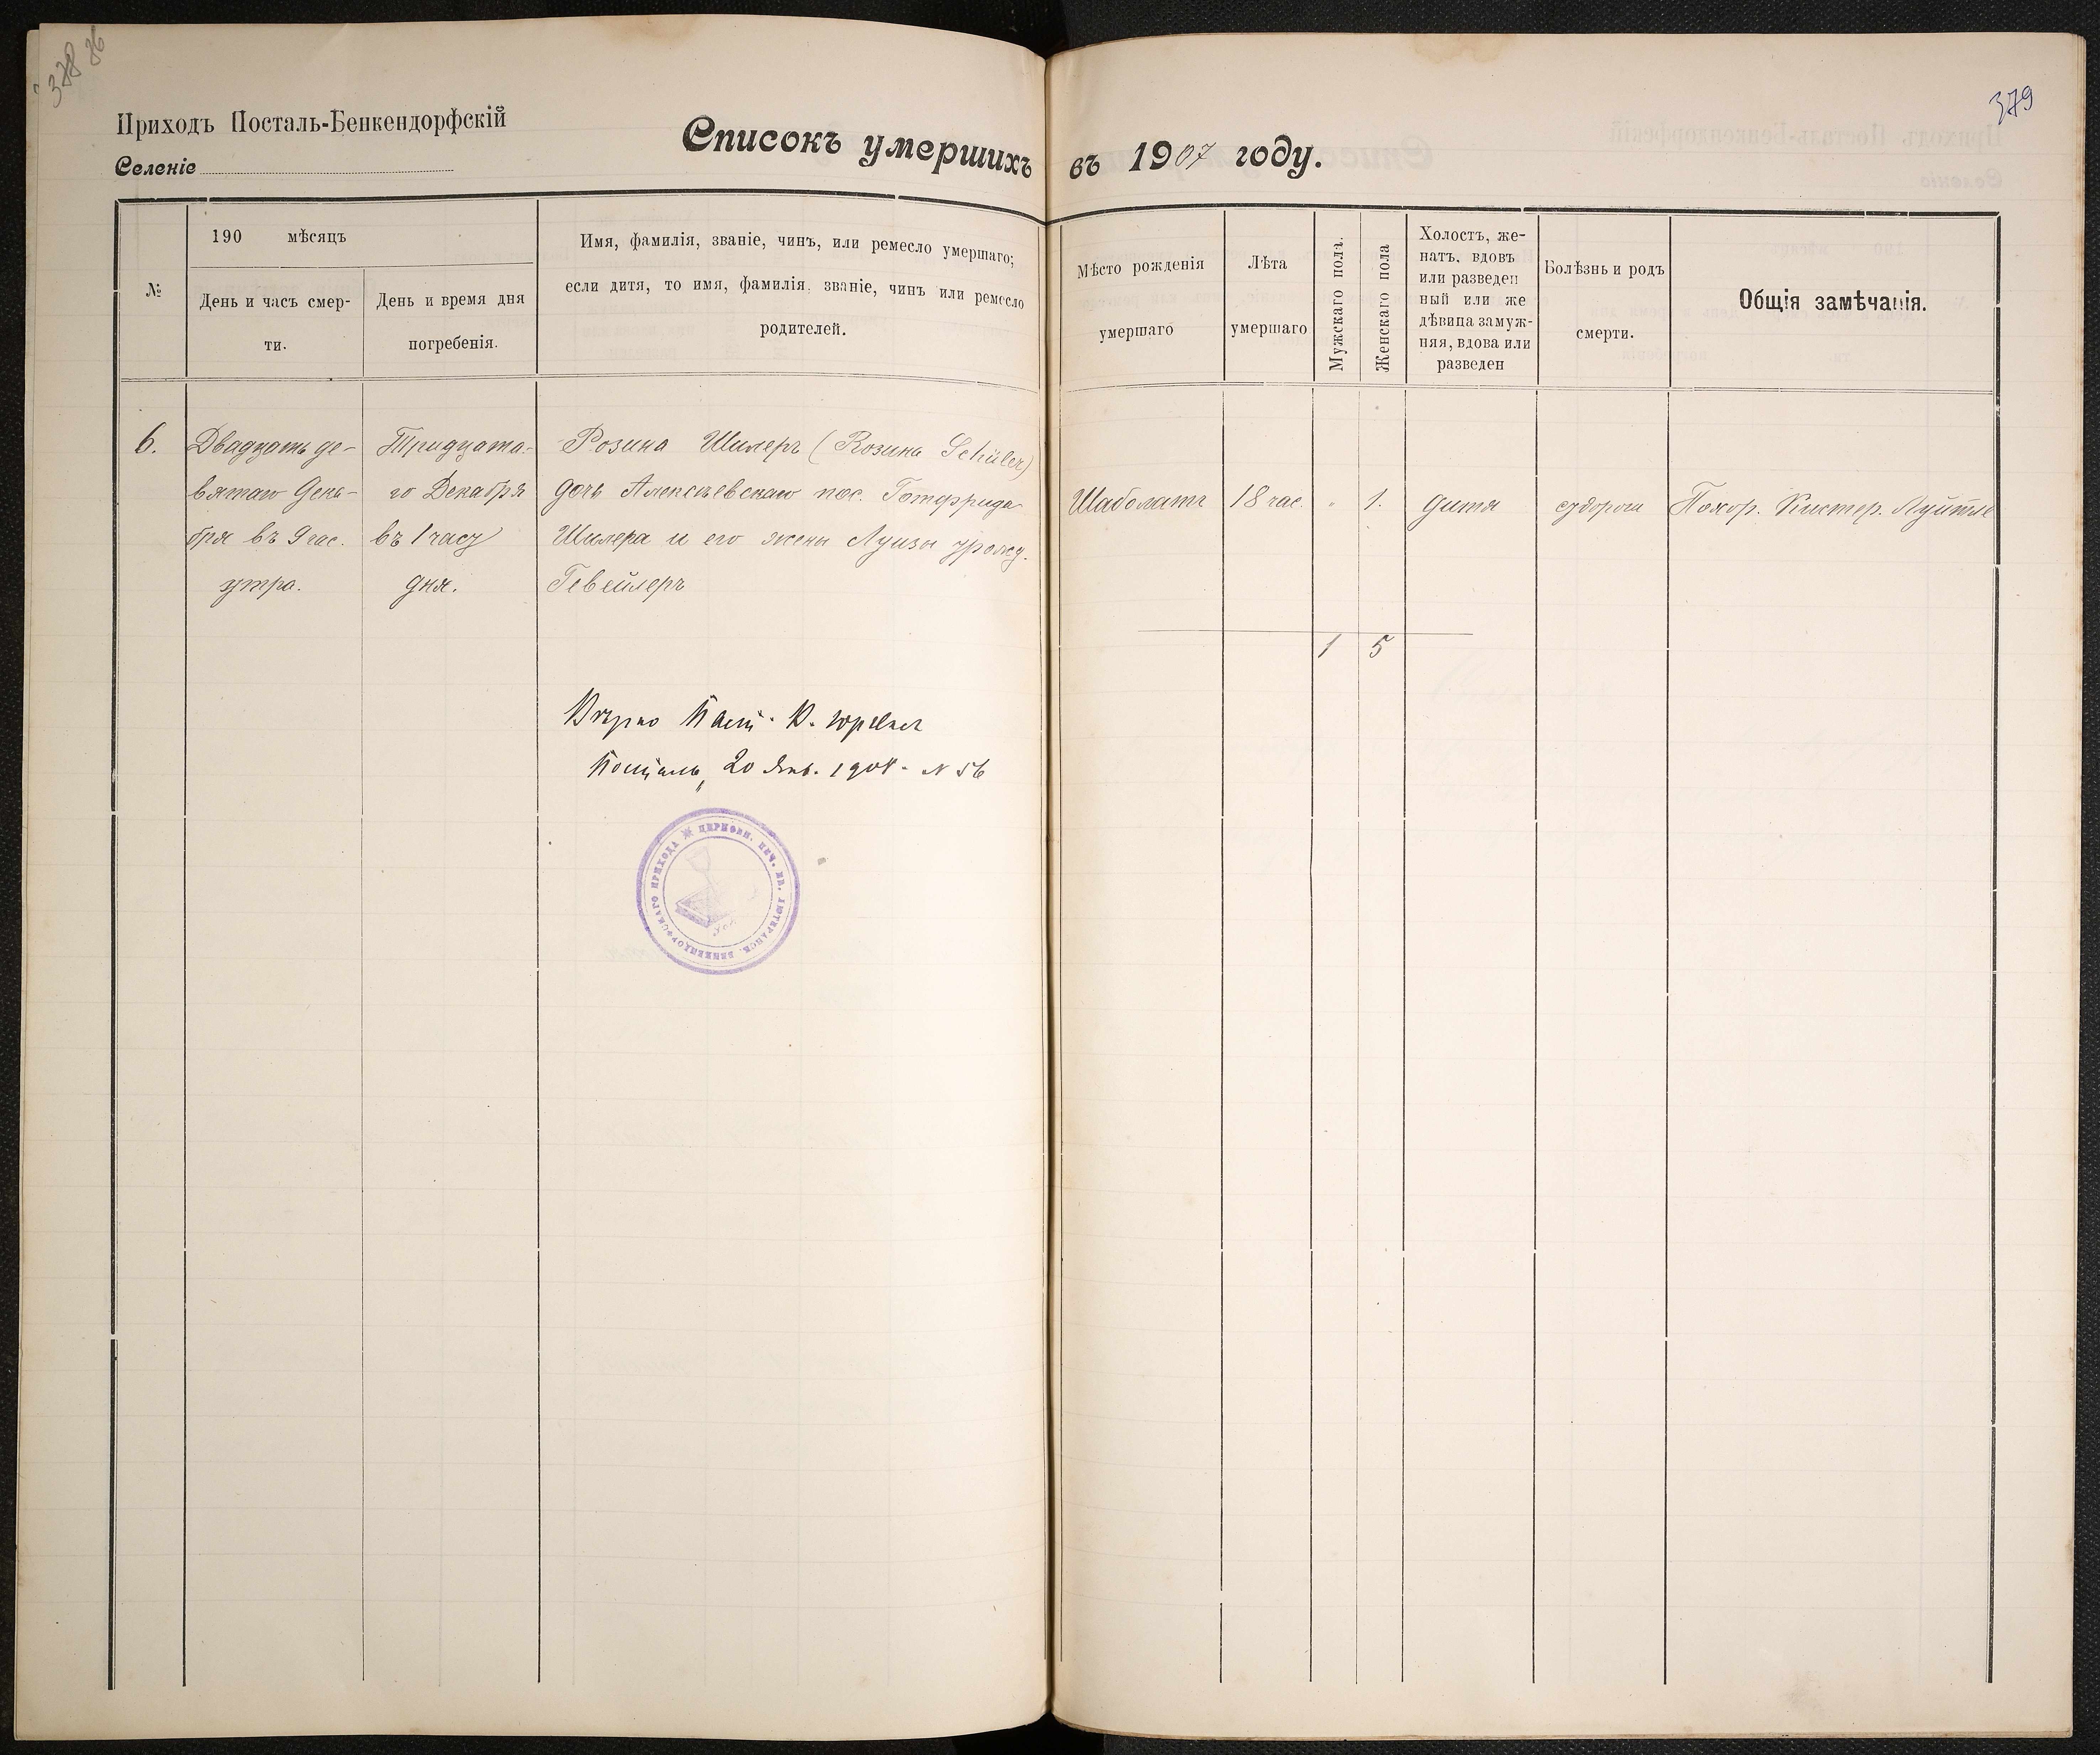 378 36
379
Приходъ Посталь-Бенкендорфскій
Селеніе
Списокъ умершихъ въ 1907 году.
№
190 мѣсяцъ
День и часъ смер-
ти.
День и время дня
погребенія.
Имя, фамилія, званіе, чинъ, или ремесло умершаго;
если дитя, то имя, фамилія, званіе, чинъ или ремесло
родителей.
Мѣсто рожденія
умершаго
Лѣта
умершаго
Мужскаго пола.
Женскаго пола
Холостъ, же-
натъ, вдовъ
или разведен
ный или же
дѣвица замуж-
няя, вдова или
разведен
Болѣзнь и родъ
смерти.
Общія замѣчанія.
6.
Двадцать де-
вятаго Дека-
бря въ 9 час.
утра.
Тридцата-
го Декабря
въ 1 часу
дня.
Розина Шилеръ (Rозина Schüler)
дочь Алексѣевскаго пос. Готфрида
Шилера и его жены Луизы урожд.
Гевейлеръ
Шаболатъ
18 час.
"
1.
дитя
судороги
Похор. Кистер. Луйтле
1 5
Вѣрно Паст. В.
Посталь, 20 Янв. 1908. N 56
ЦЕРКОВН. ПЕЧ. ЕВ. ЛЮТЕРАНСК. БЕНКЕНДОРФСКАГО ПРИХОДА